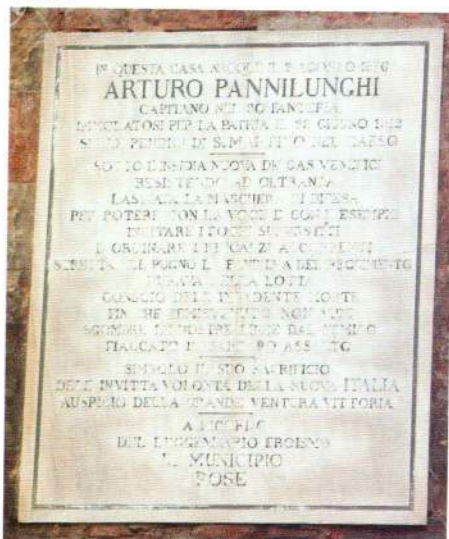 IN QUESTA CASA NACQUE IL AGOSTO
ARTURO PANNILUNGHI
CAPITANO NEI BOMBARDIERI
IMMOLATOSI PER LA PATRIA IL GIUGNO
SULLE PENDICI DI S. MARTINO DEL CARSO
SOTTO L'INSIDIA NUOVA DE' GAS VENEFICI
RESISTENDO AD OLTRANZA
LASCIATA LA MASCHERA DI DIFESA
PER POTERE CON LA VOCE E CON L'ESEMPIO
INCITARE I POCHI SUPERSTITI
E ORDINARE I RINCALZI ACCORRENTI
STRETTA NEL PUGNO LA BANDIERA DEL REGGIMENTO
DURAVA NELLA LOTTA
CONSCIO DELL' MORTE
FINCHE NON VIDE
SGOMBRE LE NOSTRE LINEE DAL NEMICO
FIACCATO IL BARBARO ASSALTO
SIMBOLO IL SUO SACRIFICIO
DELL'INVITTA VOLONTÀ DELLA NUOVA ITALIA
AUSPICIO DELLA GRANDE VENTURA VITTORIA
A RICORDO
DEL LEGGENDARIO EROISMO
IL MUNICIPIO
POSE